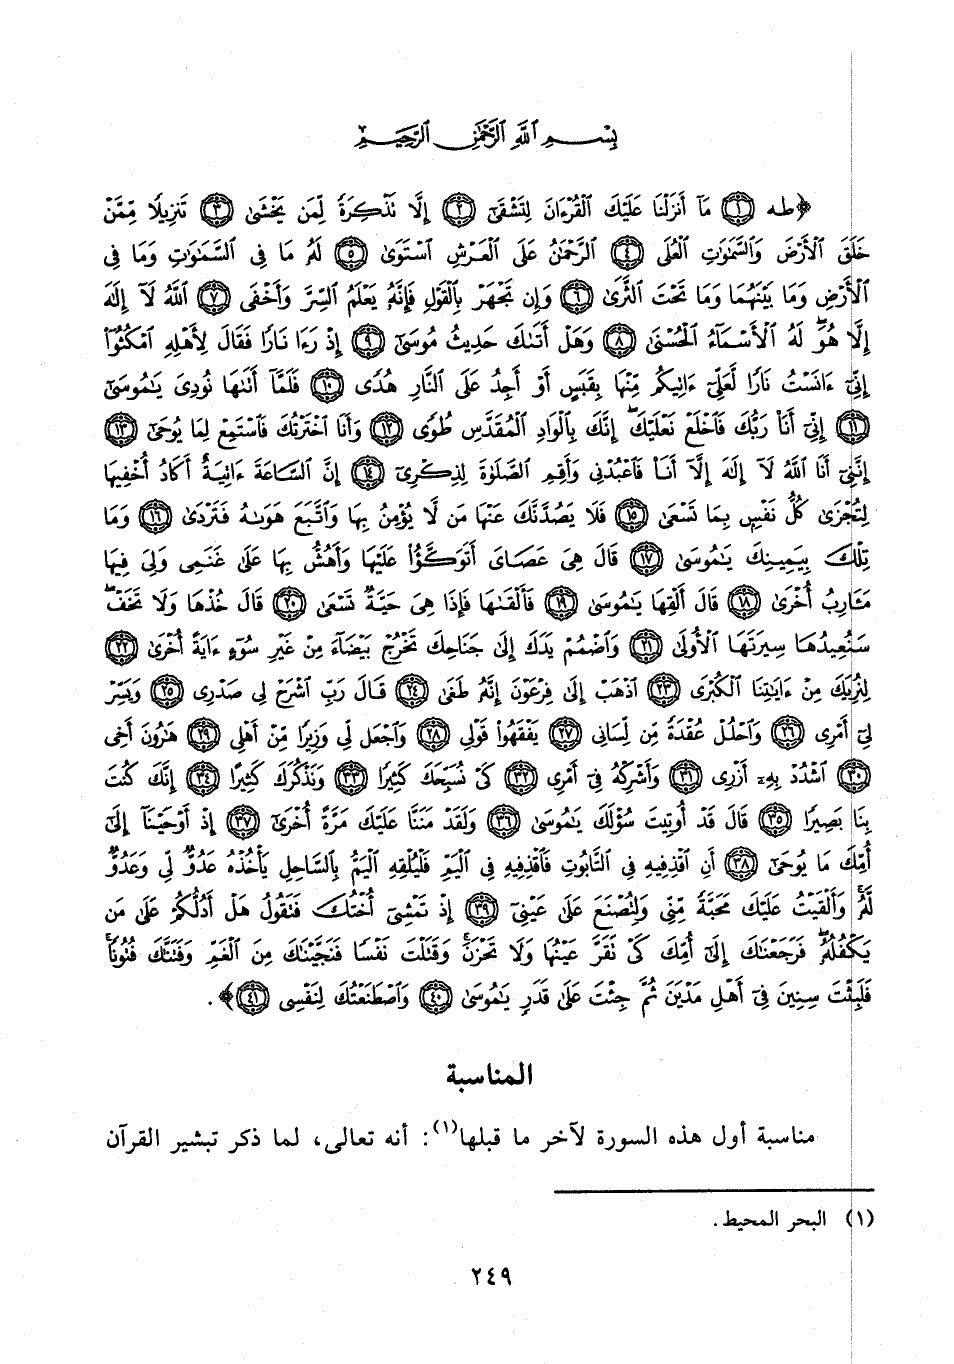 بِسْمِ اللَّهِ الرَّحْمَٰنِ الرَّحِيمِ
﴿طه ١ مَآ أَنزَلْنَا عَلَيْكَ ٱلْقُرْءَانَ لِتَشْقَىٰٓ ٢ إِلَّا تَذْكِرَةً لِّمَن يَخْشَىٰ ٣ تَنزِيلًا مِّمَّنْ
خَلَقَ ٱلْأَرْضَ وَٱلسَّمَٰوَٰتِ ٱلْعُلَى ٤ ٱلرَّحْمَٰنُ عَلَى ٱلْعَرْشِ ٱسْتَوَىٰ ٥ لَهُۥ مَا فِى ٱلسَّمَٰوَٰتِ وَمَا فِى
ٱلْأَرْضِ وَمَا بَيْنَهُمَا وَمَا تَحْتَ ٱلثَّرَىٰ ٦ وَإِن تَجْهَرْ بِٱلْقَوْلِ فَإِنَّهُۥ يَعْلَمُ ٱلسِّرَّ وَأَخْفَى ٧ ٱللَّهُ لَآ إِلَٰهَ
إِلَّا هُوَ ۖ لَهُ ٱلْأَسْمَآءُ ٱلْحُسْنَىٰ ٨ وَهَلْ أَتَىٰكَ حَدِيثُ مُوسَىٰٓ ٩ إِذْ رَءَا نَارًا فَقَالَ لِأَهْلِهِ ٱمْكُثُوٓا۟
إِنِّىٓ ءَانَسْتُ نَارًا لَّعَلِّىٓ ءَاتِيكُم مِّنْهَا بِقَبَسٍ أَوْ أَجِدُ عَلَى ٱلنَّارِ هُدًى ١٠ فَلَمَّآ أَتَىٰهَا نُودِىَ يَٰمُوسَىٰٓ
١١ إِنِّىٓ أَنَا۠ رَبُّكَ فَٱخْلَعْ نَعْلَيْكَ ۖ إِنَّكَ بِٱلْوَادِ ٱلْمُقَدَّسِ طُوًى ١٢ وَأَنَا ٱخْتَرْتُكَ فَٱسْتَمِعْ لِمَا يُوحَىٰٓ ١٣
إِنَّنِىٓ أَنَا ٱللَّهُ لَآ إِلَٰهَ إِلَّآ أَنَا۠ فَٱعْبُدْنِى وَأَقِمِ ٱلصَّلَوٰةَ لِذِكْرِىٓ ١٤ إِنَّ ٱلسَّاعَةَ ءَاتِيَةٌ أَكَادُ أُخْفِيهَا
لِتُجْزَىٰ كُلُّ نَفْسٍۭ بِمَا تَسْعَىٰ ١٥ فَلَا يَصُدَّنَّكَ عَنْهَا مَن لَّا يُؤْمِنُ بِهَا وَٱتَّبَعَ هَوَىٰهُ فَتَرْدَىٰ ١٦ وَمَا
تِلْكَ بِيَمِينِكَ يَٰمُوسَىٰ ١٧ قَالَ هِىَ عَصَاىَ أَتَوَكَّؤُا۟ عَلَيْهَا وَأَهُشُّ بِهَا عَلَىٰ غَنَمِى وَلِىَ فِيهَا
مَـَٔارِبُ أُخْرَىٰ ١٨ قَالَ أَلْقِهَا يَٰمُوسَىٰ ١٩ فَأَلْقَىٰهَا فَإِذَا هِىَ حَيَّةٌ تَسْعَىٰ ٢٠ قَالَ خُذْهَا وَلَا تَخَفْ ۖ
سَنُعِيدُهَا سِيرَتَهَا ٱلْأُولَىٰ ٢١ وَٱضْمُمْ يَدَكَ إِلَىٰ جَنَاحِكَ تَخْرُجْ بَيْضَآءَ مِنْ غَيْرِ سُوٓءٍ ءَايَةً أُخْرَىٰ ٢٢
لِنُرِيَكَ مِنْ ءَايَٰتِنَا ٱلْكُبْرَى ٢٣ ٱذْهَبْ إِلَىٰ فِرْعَوْنَ إِنَّهُۥ طَغَىٰ ٢٤ قَالَ رَبِّ ٱشْرَحْ لِى صَدْرِى ٢٥ وَيَسِّرْ
لِىٓ أَمْرِى ٢٦ وَٱحْلُلْ عُقْدَةً مِّن لِّسَانِى ٢٧ يَفْقَهُوا۟ قَوْلِى ٢٨ وَٱجْعَل لِّى وَزِيرًا مِّنْ أَهْلِى ٢٩ هَٰرُونَ أَخِى
٣٠ ٱشْدُدْ بِهِۦٓ أَزْرِى ٣١ وَأَشْرِكْهُ فِىٓ أَمْرِى ٣٢ كَىْ نُسَبِّحَكَ كَثِيرًا ٣٣ وَنَذْكُرَكَ كَثِيرًا ٣٤ إِنَّكَ كُنتَ
بِنَا بَصِيرًا ٣٥ قَالَ قَدْ أُوتِيتَ سُؤْلَكَ يَٰمُوسَىٰ ٣٦ وَلَقَدْ مَنَنَّا عَلَيْكَ مَرَّةً أُخْرَىٰٓ ٣٧ إِذْ أَوْحَيْنَآ إِلَىٰٓ
أُمِّكَ مَا يُوحَىٰٓ ٣٨ أَنِ ٱقْذِفِيهِ فِى ٱلتَّابُوتِ فَٱقْذِفِيهِ فِى ٱلْيَمِّ فَلْيُلْقِهِ ٱلْيَمُّ بِٱلسَّاحِلِ يَأْخُذْهُ عَدُوٌّ لِّى وَعَدُوٌّ
لَّهُۥ ۚ وَأَلْقَيْتُ عَلَيْكَ مَحَبَّةً مِّنِّى وَلِتُصْنَعَ عَلَىٰ عَيْنِىٓ ٣٩ إِذْ تَمْشِىٓ أُخْتُكَ فَتَقُولُ هَلْ أَدُلُّكُمْ عَلَىٰ مَن
يَكْفُلُهُۥ ۖ فَرَجَعْنَٰكَ إِلَىٰٓ أُمِّكَ كَىْ تَقَرَّ عَيْنُهَا وَلَا تَحْزَنَ ۚ وَقَتَلْتَ نَفْسًا فَنَجَّيْنَٰكَ مِنَ ٱلْغَمِّ وَفَتَنَّٰكَ فُتُونًا ۚ
فَلَبِثْتَ سِنِينَ فِىٓ أَهْلِ مَدْيَنَ ثُمَّ جِئْتَ عَلَىٰ قَدَرٍ يَٰمُوسَىٰ ٤٠ وَٱصْطَنَعْتُكَ لِنَفْسِى ٤١﴾.
المناسبة
مناسبة أول هذه السورة لآخر ما قبلها(١): أنه تعالى، لما ذكر تبشير القرآن
(١) البحر المحيط.
٢٤٩